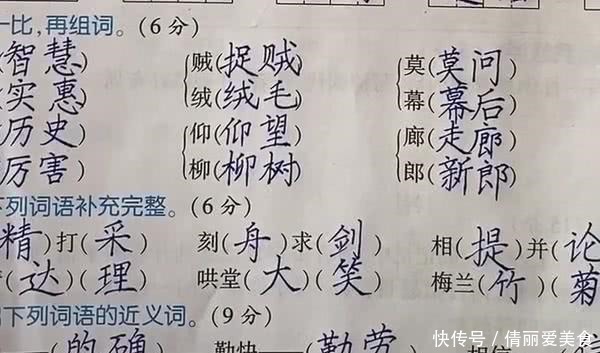 一比，再组词。(6分)
智慧) 贼(捉贼) 莫(莫问)
实惠) 绒(绒毛) 幕(幕后)
历史) 仰(仰望) 廊(走廊)
厉害) 柳(柳树) 郎(新郎)
下列词语补充完整。(6分)
精)打(采) 刻(舟)求(剑) 相(提)并(论
(达)(理) 哄堂(大)(笑) 梅兰(竹)(菊
下列词语的近义词。(9分)
的确 勤快——(勤劳
快传号／倩丽爱美食